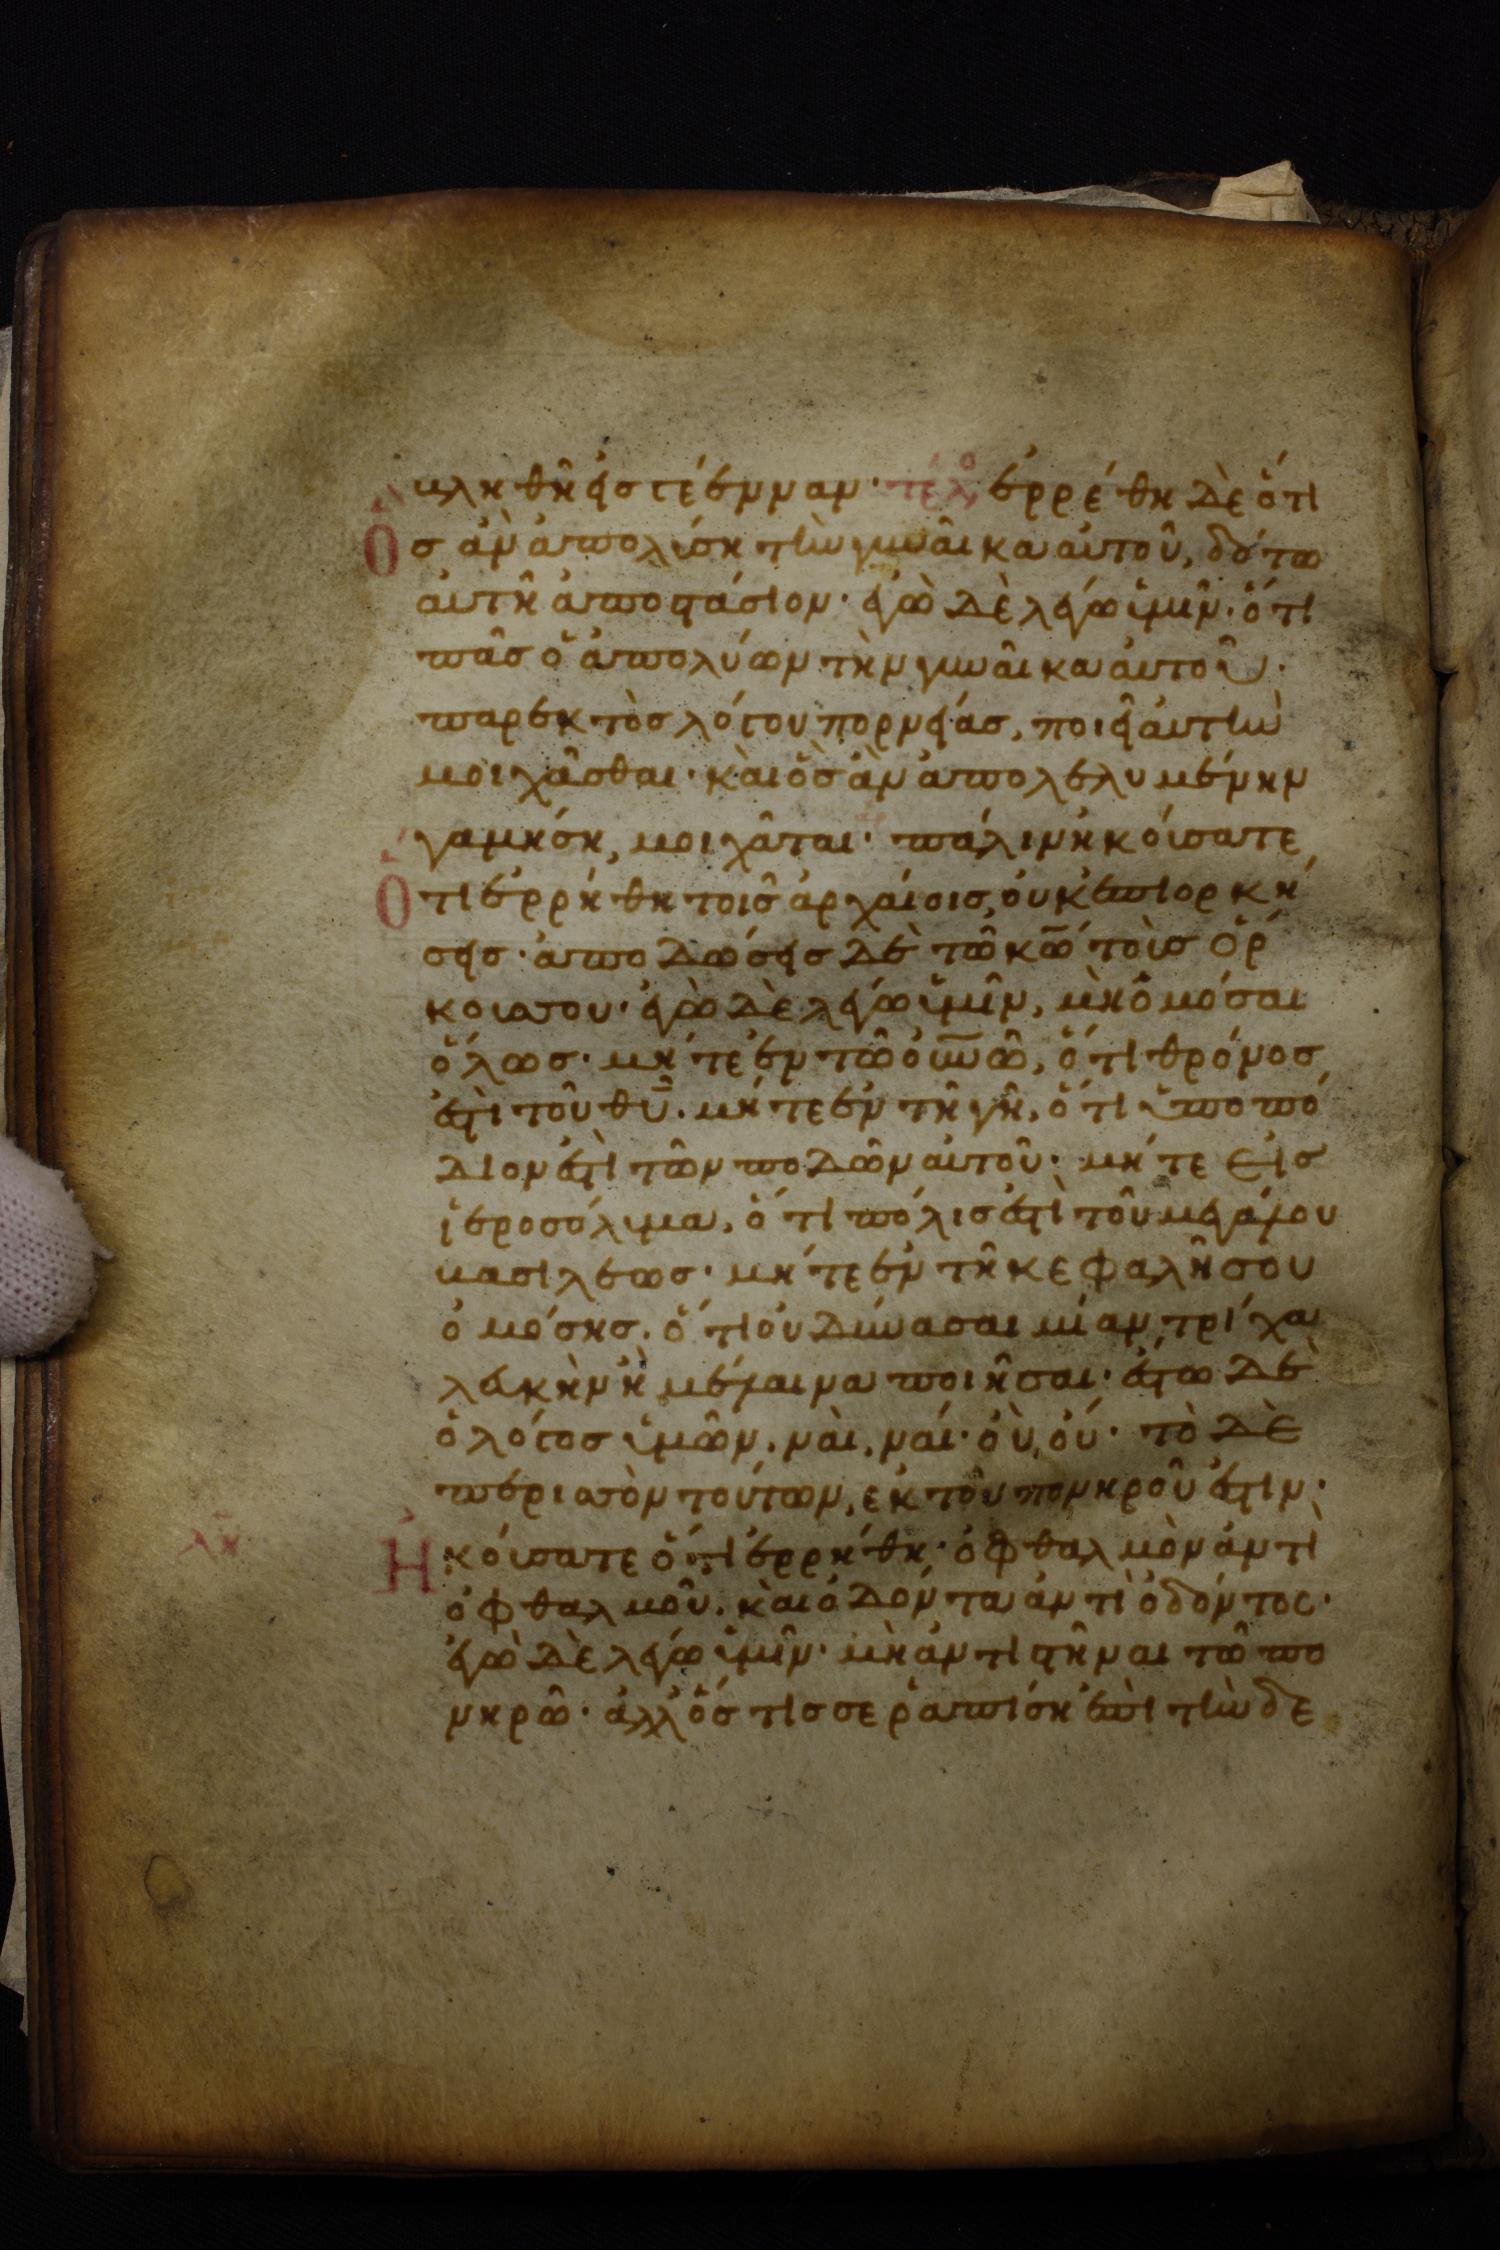 βληθῆ εἰς γέενναν· τέλος ἐρρέθη δὲ ὅτι
Ὃς ἂν ἀπολύση τὴν γυναῖκα αὐτοῦ, δότω
αὐτῆ ἀποστάσιον· ἐγὼ δὲ λέγω ὑμῖν· ὅτι
πᾶσ ὁ ἀπολύων τὴν γυναῖκα αὐτοῦ·
παρεκτὸσ λόγου πορνείασ, ποιεῖ αὐτὴν
μοιχᾶσθαι· καὶ ὃσ ἂν ἀπολελυμένην
γαμήση, μοιχᾶται· πάλιν ἠκούσατε
Ὅτι ἐρρήθη τοῖσ ἀρχαίοισ, οὐκ ἐπιορκή
σεισ· ἀποδώσεισ δὲ τῶ κῶ τοὺσ ὅρ
κουσ σου· ἐγὼ δὲ λέγω ὑμῖν, μὴ ὀμόσαι
ὅλωσ· μήτε ἐν τῶ οὐνῶ, ὅτι θρόνοσ
ἐστὶ τοῦ θυ· μήτε ἐν τῆ γῆ, ὅτι ὑποπό
διον ἐστὶ τῶν ποδῶν αὐτοῦ· μήτε εἰσ
ἱεροσόλυμα, ὅτι πόλισ ἐστὶ τοῦ μεγάλου
βασιλέωσ· μήτε ἐν τῆ κεφαλῆ σου
ὀμόσησ, ὅτι οὐ δύνασαι μίαν τρίχα
λευκὴν ἢ μέλαινα ποιῆσαι· ἔστω δὲ
ὁ λόγοσ ὑμῶν, ναὶ, ναί· οὒ, οὔ· τὸ δὲ
περισσὸν τούτων, ἐκ τοῦ πονηροῦ ἐστιν·
Ἠκούσατε ὅτι ἐρρήθη· ὀφθαλμὸν ἀντὶ
ὀφθαλμοῦ, καὶ ὀδόντα ἀντὶ ὀδόντοσ·
ἐγὼ δὲ λέγω ὑμῖν· μὴ ἀντιστῆναι τῶ πο
νηρῶ· ἀλλ' ὅστισ σε ῥαπίση ἐπὶ τὴν δε